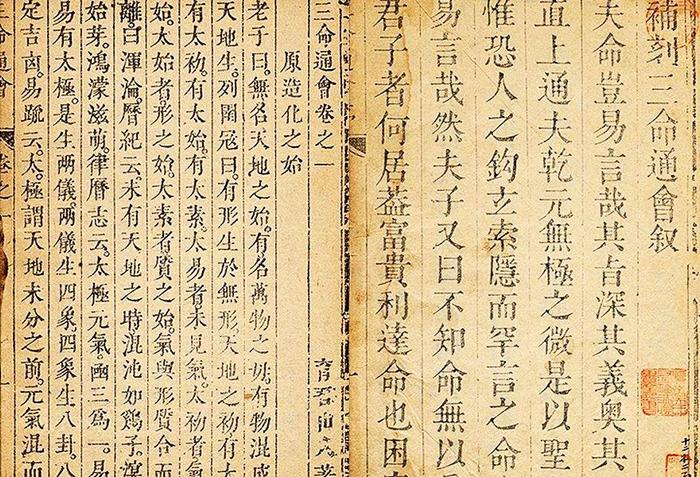 補刻三命通會叙
夫命豈易言哉其旨深其義奧其
直上通夫乾元無極之微是以聖
惟恐人之鈎玄索隱而罕言之命
易言哉然夫子又曰不知命無以
君子者何居葢富貴利達命也困
三命通會卷之一
原造化之始
老子曰。無名天地之始。有名萬物之母。有物混成
天地生。列圄寇曰。有形生於無形。天地之初有太
有太初。有太始。有太素。太易者。未見氣。太初者氣
始。太始者。形之始。太素者質之始。氣與形質合而
離。曰渾淪。曆紀云。未有天地之時。混沌如鷄子。溟
始芽。鴻濛滋萌。律曆志云。太極元氣。函三爲一。易
易有太極。是生兩儀。兩儀生四象。四象生八卦。八
定吉凶。易疏云。太極謂天地未分之前。元氣混而
命通會 卷之一